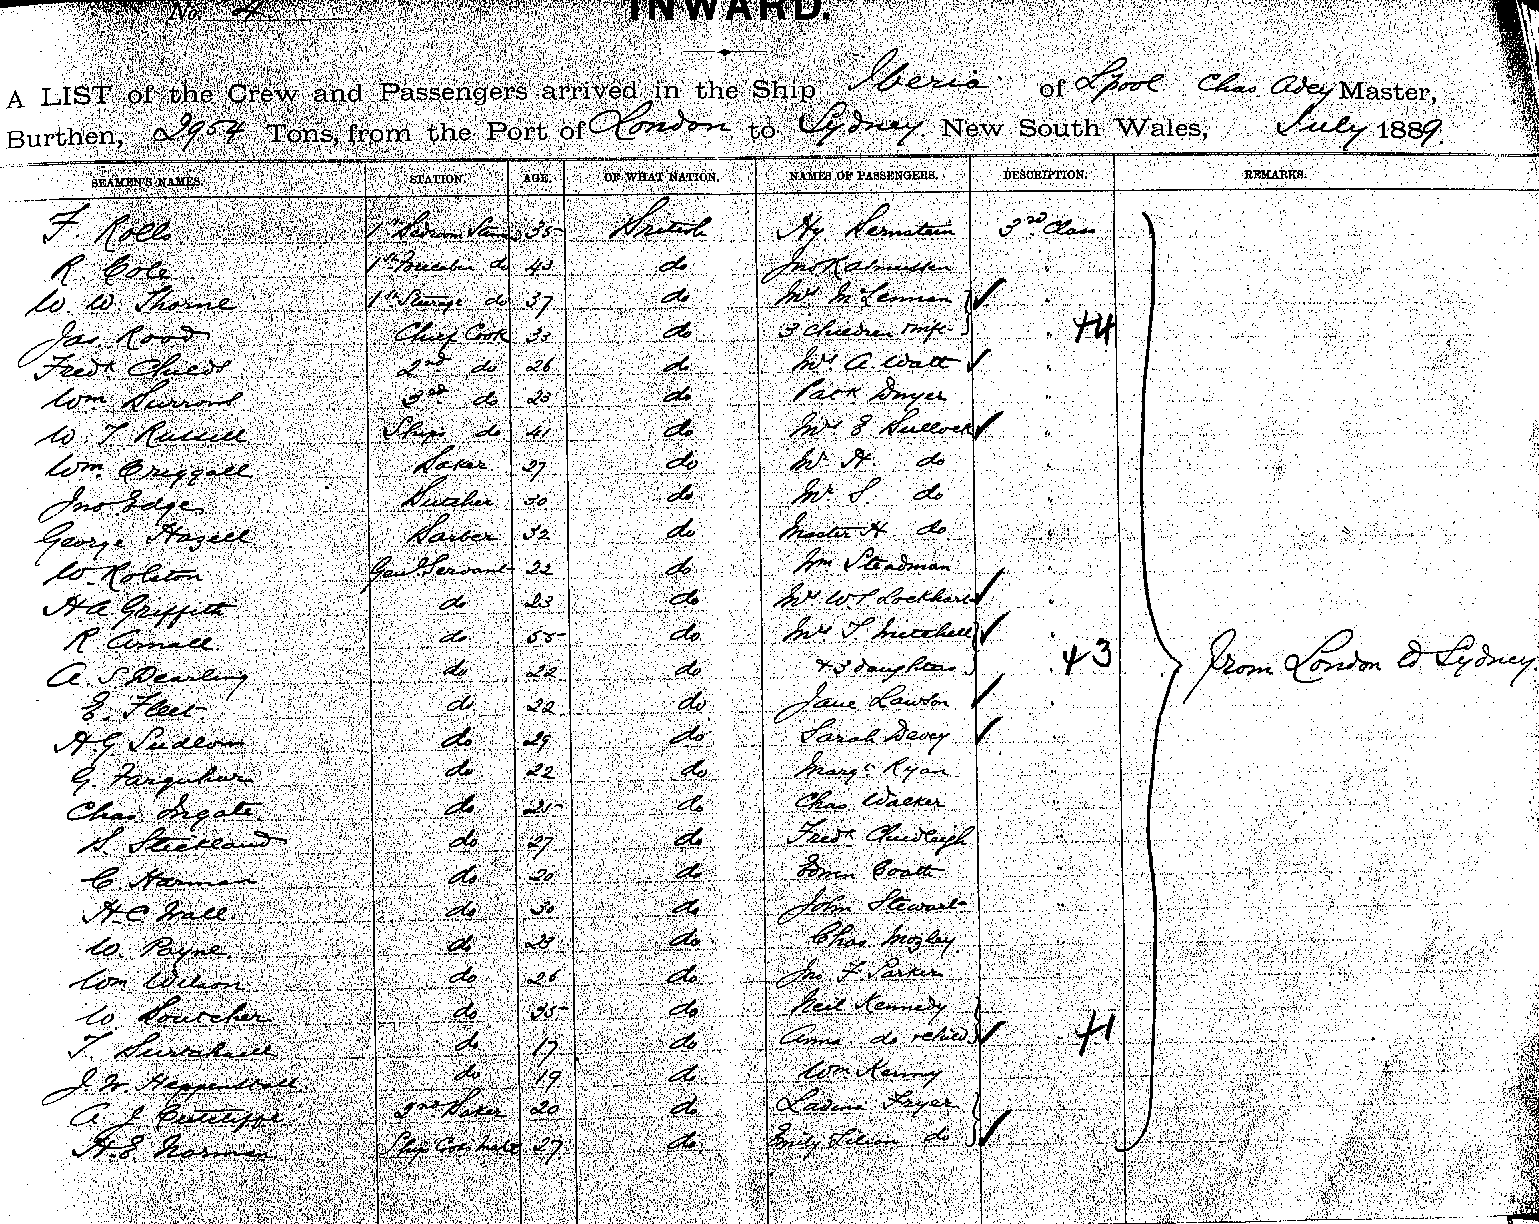 No. 4
INWARD.
A LIST of the Crew and Passengers arrived in the Ship Iberia of Lpool Chas Adey Master,
Burthen, 2954 Tons, from the Port of London to Sydney New South Wales, July 1889.
SEAMEN'S NAMES. STATION. AGE. OF WHAT NATION. NAMES OF PASSENGERS. DESCRIPTION. REMARKS.
F. Rolls 1st Saloon 35 British Hy Bernstein 3rd Class
R. Cole 1st do 43 do Jno Rasmussen "
W. W. Thorne 1st Steerage do 37 do Mrs McLennan "
Jas Rood Chief Cook 33 do 3 children " +4
Fredk Childs 2nd do 26 do Mrs A Watt "
Wm 3rd do 23 do Patk Dwyer
W T Russell Ships do 41 do Mrs E Bullock "
Wm Criggall Baker 27 do Mr H. do "
Jno Edge Butcher 30 do Mr S. do "
George Hazell Barber 32 do Master H do "
W. Rolston Genl Servant 22 do Wm Steadman
H A Griffith do 23 do Mrs W S Lockhart "
R Arnall do 55 do Mrs T Mitchell "
A. S Dearling do 22 do + 3 daughters " +3 from London to Sydney.
E. Fleet do 22 do Jane Lawson "
H G Sudlow do 29 do Sarah Davey "
G. Farquhar do 22 do Margt Ryan "
Chas Ingate do 25 do Chas Walker "
S. Strickland do 27 do Fredk Chudleigh "
C Harman do 20 do Edwin Coath "
H. C Wall do 30 do John Stewart "
W. Payne do 23 do Chas Mozley
Wm Wilson do 26 do Jno F Parker
W Boutcher do 35 do Neil Kennedy
T. do 17 do Anna do +1
J. W. do 19 do Wm Kenny
A J Cutcliffe 2nd Baker 20 do Fryer
H. E. Norman Ship Cooks mate 27 do Emily do